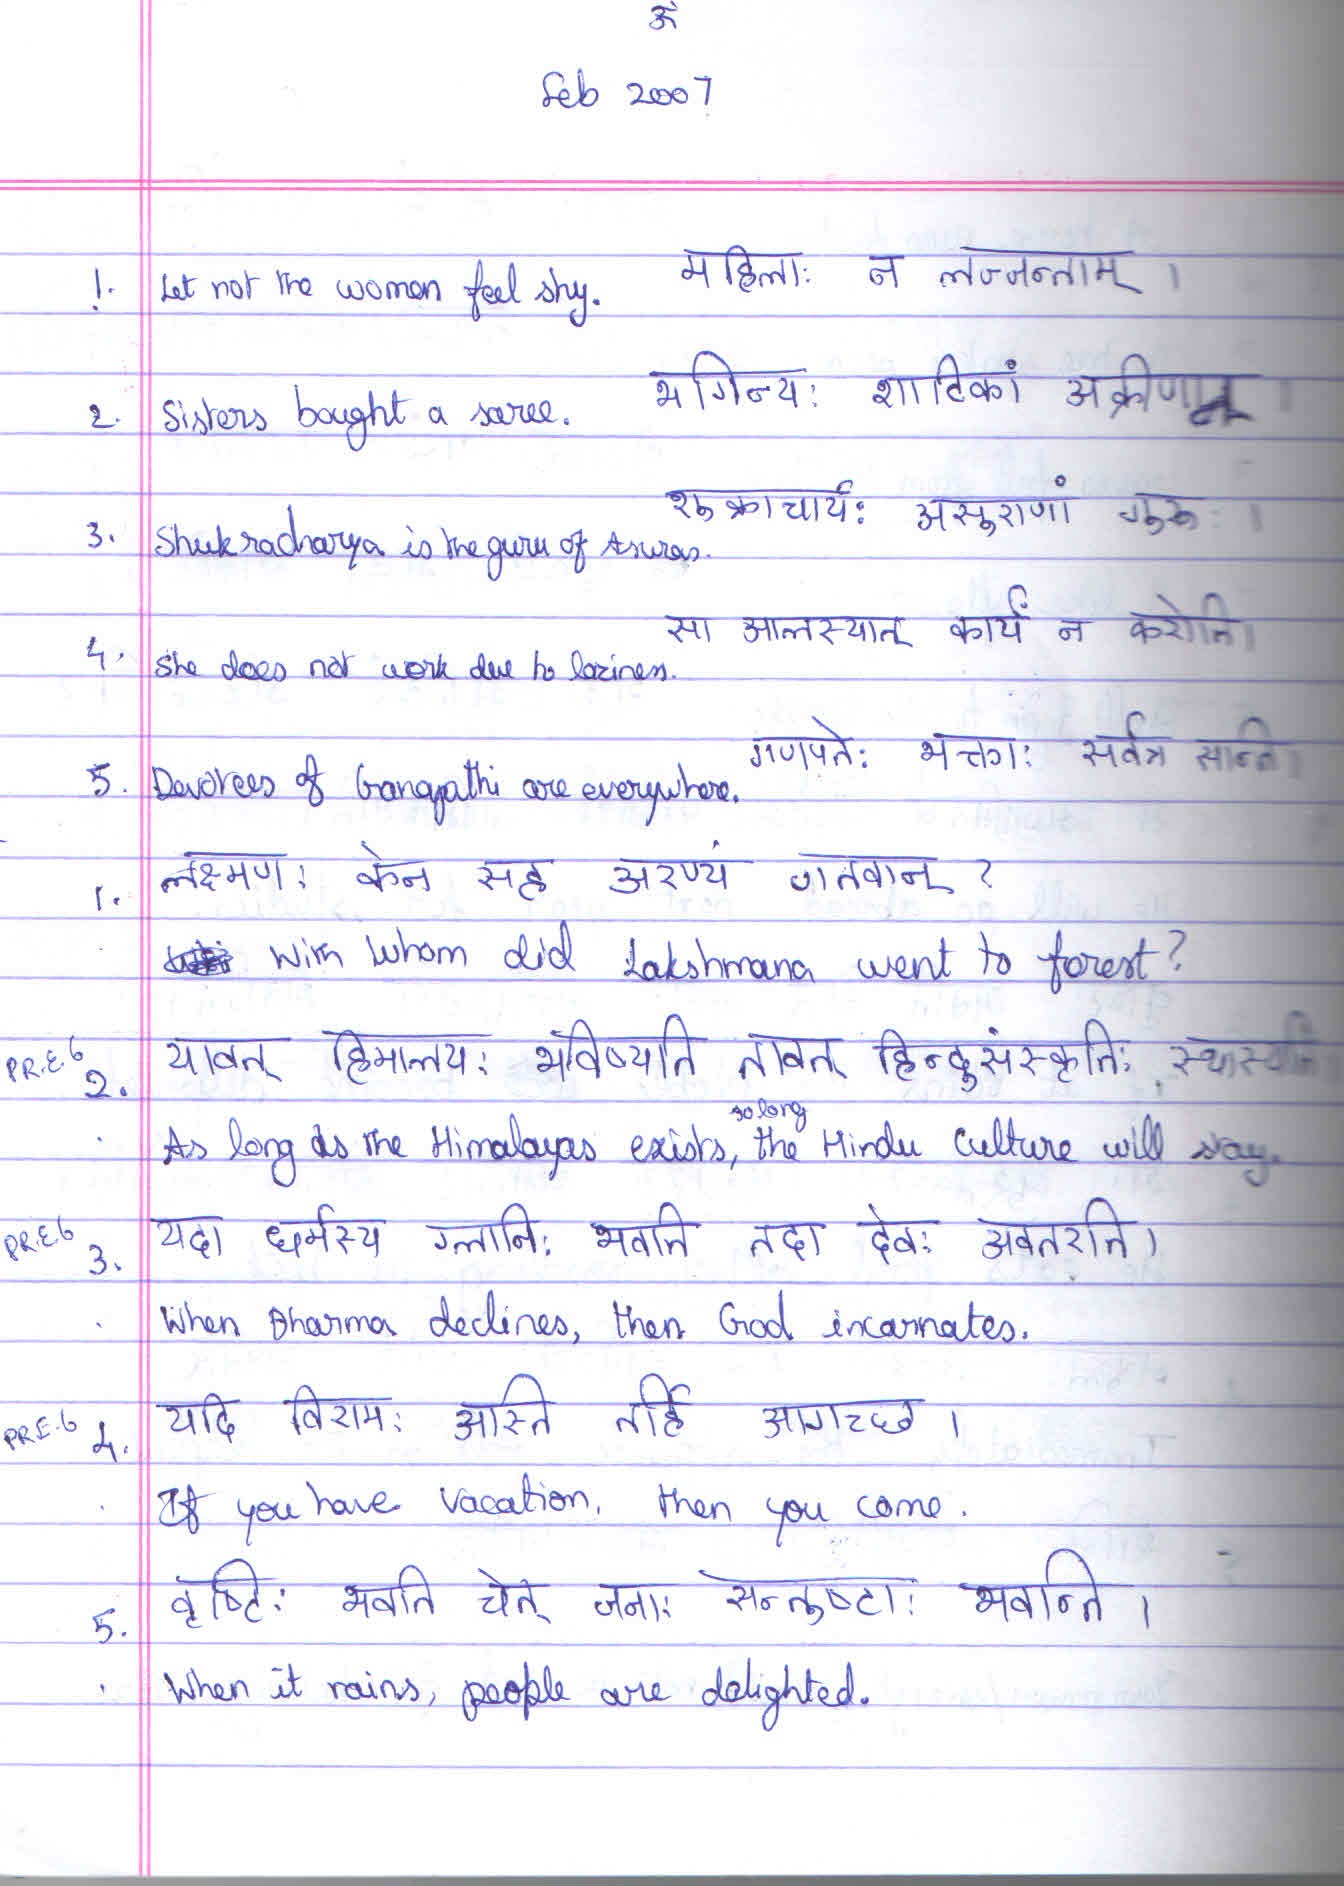 ॐ
Feb 2007
1. Let not the woman feel shy. महिलाः न लज्जन्ताम् ।
2. Sisters bought a saree. भगिन्यः शाटिकां ।
3. Shukracharya is the guru of Asuras. शुक्राचार्यः असुराणां गुरुः ।
4. She does not work due to laziness. सा आलस्यात् कार्यं न करोति।
5. Devotees of Ganapathi are everywhere. गणपतेः भक्ताः सर्वत्र सन्ति।
1. लक्ष्मणः केन सह अरण्यं गतवान् ?
With whom did Lakshmana went to forest?
PR.E.6 2. यावत् हिमालयः भविष्यति तावत् हिन्दुसंस्कृतिः स्थास्यति
As long as the Himalayas exists, so long the Hindu Culture will stay.
PR.E.6 3. यदा धर्मस्य ग्लानिः भवति तदा देवः अवतरति ।
When Dharma declines, then God incarnates.
PR.E.6 4. यदि विरामः अस्ति तर्हि आगच्छ ।
If you have vacation, then you come.
5. वृष्टिः भवति चेत् जनाः सन्तुष्टाः भवन्ति ।
When it rains, people are delighted.